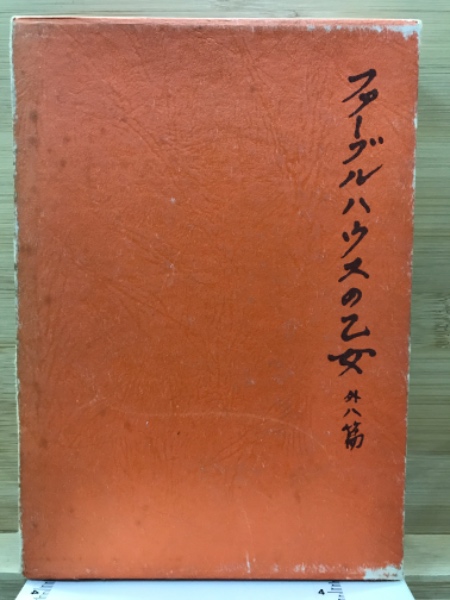 ファーグルハウスの乙女 外八篇
4
4